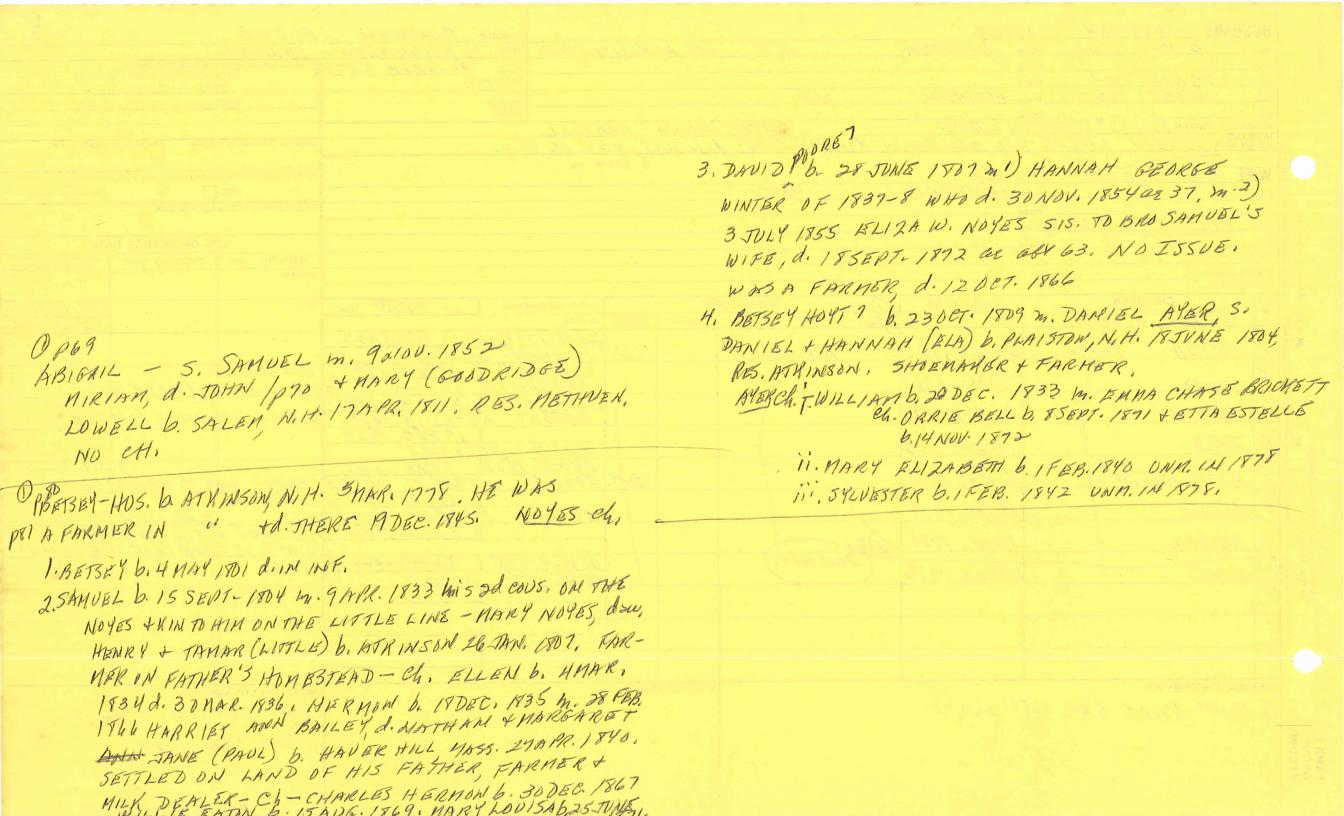 ① p69
ABIGAIL — S. SAMUEL m. 9 NOV. 1852
MIRIAM, d. JOHN /p70 + MARY (GOODRIDGE)
LOWELL b. SALEM, N.H. 17 APR. 1811. RES. METHUEN.
NO CH.
① p80
BETSEY-HUS. b. ATKINSON, N.H. 5 MAR. 1778. HE WAS
p81 A FARMER IN " + d. THERE 19 DEC. 1845. NOYES ch.
1. BETSEY b. 4 MAY 1801 d. IN INF.
2. SAMUEL b. 15 SEPT- 1804 m. 9 APR. 1833 his 2d COUS. ON THE
NOYES + KIN TO HIM ON THE LITTLE LINE - MARY NOYES, dau.
HENRY + TAMAR (LITTLE) b. ATKINSON 26 JAN. 1807. FAR-
MER ON FATHER'S HOMESTEAD - Ch. ELLEN b. 4 MAR.
1834 d. 30 MAR. 1836. HERMON b. 18 DEC. 1835 m. 28 FEB.
1866 HARRIET ANN BAILEY, d. NATHAN + MARGARET
ANN JANE (PAUL) b. HAVERHILL, MASS. 27 APR. 1840.
SETTLED ON LAND OF HIS FATHER, FARMER +
MILK DEALER - Ch - CHARLES HERMON b. 30 DEC. 1867
WILLIE EATON b. 15 AUG. 1869. MARY LOUISA b. 25 JUNE
3. DAVID POORE 7 b. 28 JUNE 1807 m 1) HANNAH GEORGE
WINTER OF 1837-8 WHO d. 30 NOV. 1854 ae 37, m. 2)
3 JULY 1855 ELIZA W. NOYES SIS. TO BRO SAMUEL'S
WIFE, d. 18 SEPT- 1872 ae abt 63. NO ISSUE.
WAS A FARMER, d. 12 OCT. 1866
4. BETSEY HOYT 7 b. 23 OCT. 1809 m. DANIEL AYER, S.
DANIEL + HANNAH (ELA) b. PLAISTOW, N.H. 18 JUNE 1804,
RES. ATKINSON. SHOEMAKER + FARMER.
AYER Ch. i. WILLIAM b. 22 DEC. 1833 m. EMMA CHASE BRICKETT
Ch. ORRIE BELL b. 8 SEPT. 1871 + ETTA ESTELLE
b. 14 NOV. 1872
ii. MARY ELIZABETH b. 1 FEB. 1840 UNM. IN 1878
iii. SYLVESTER b. 1 FEB. 1842 UNM. IN 1878.